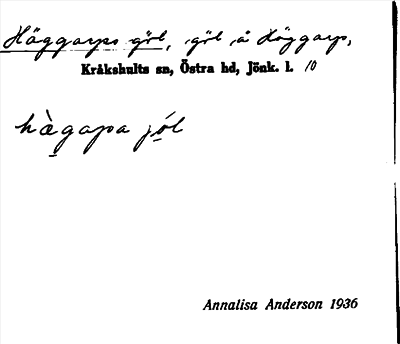 Häggarps göl, göl å Häggarp,
Kråkshults sn, Östra hd, Jönk. l. 10
hàgapa jól
Annalisa Anderson 1936